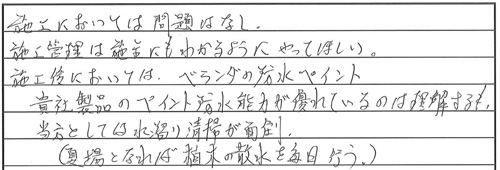 施工においては問題はなし.
施工管理は施主にもわかるようにやってほしい。
施工後においては、ベランダの防水ペイント
貴社製品のペイント防水能力が優れているのは理解するも,
当方としては水溜り清掃が面倒.
(夏場となれば植木の散水を毎日行う。)